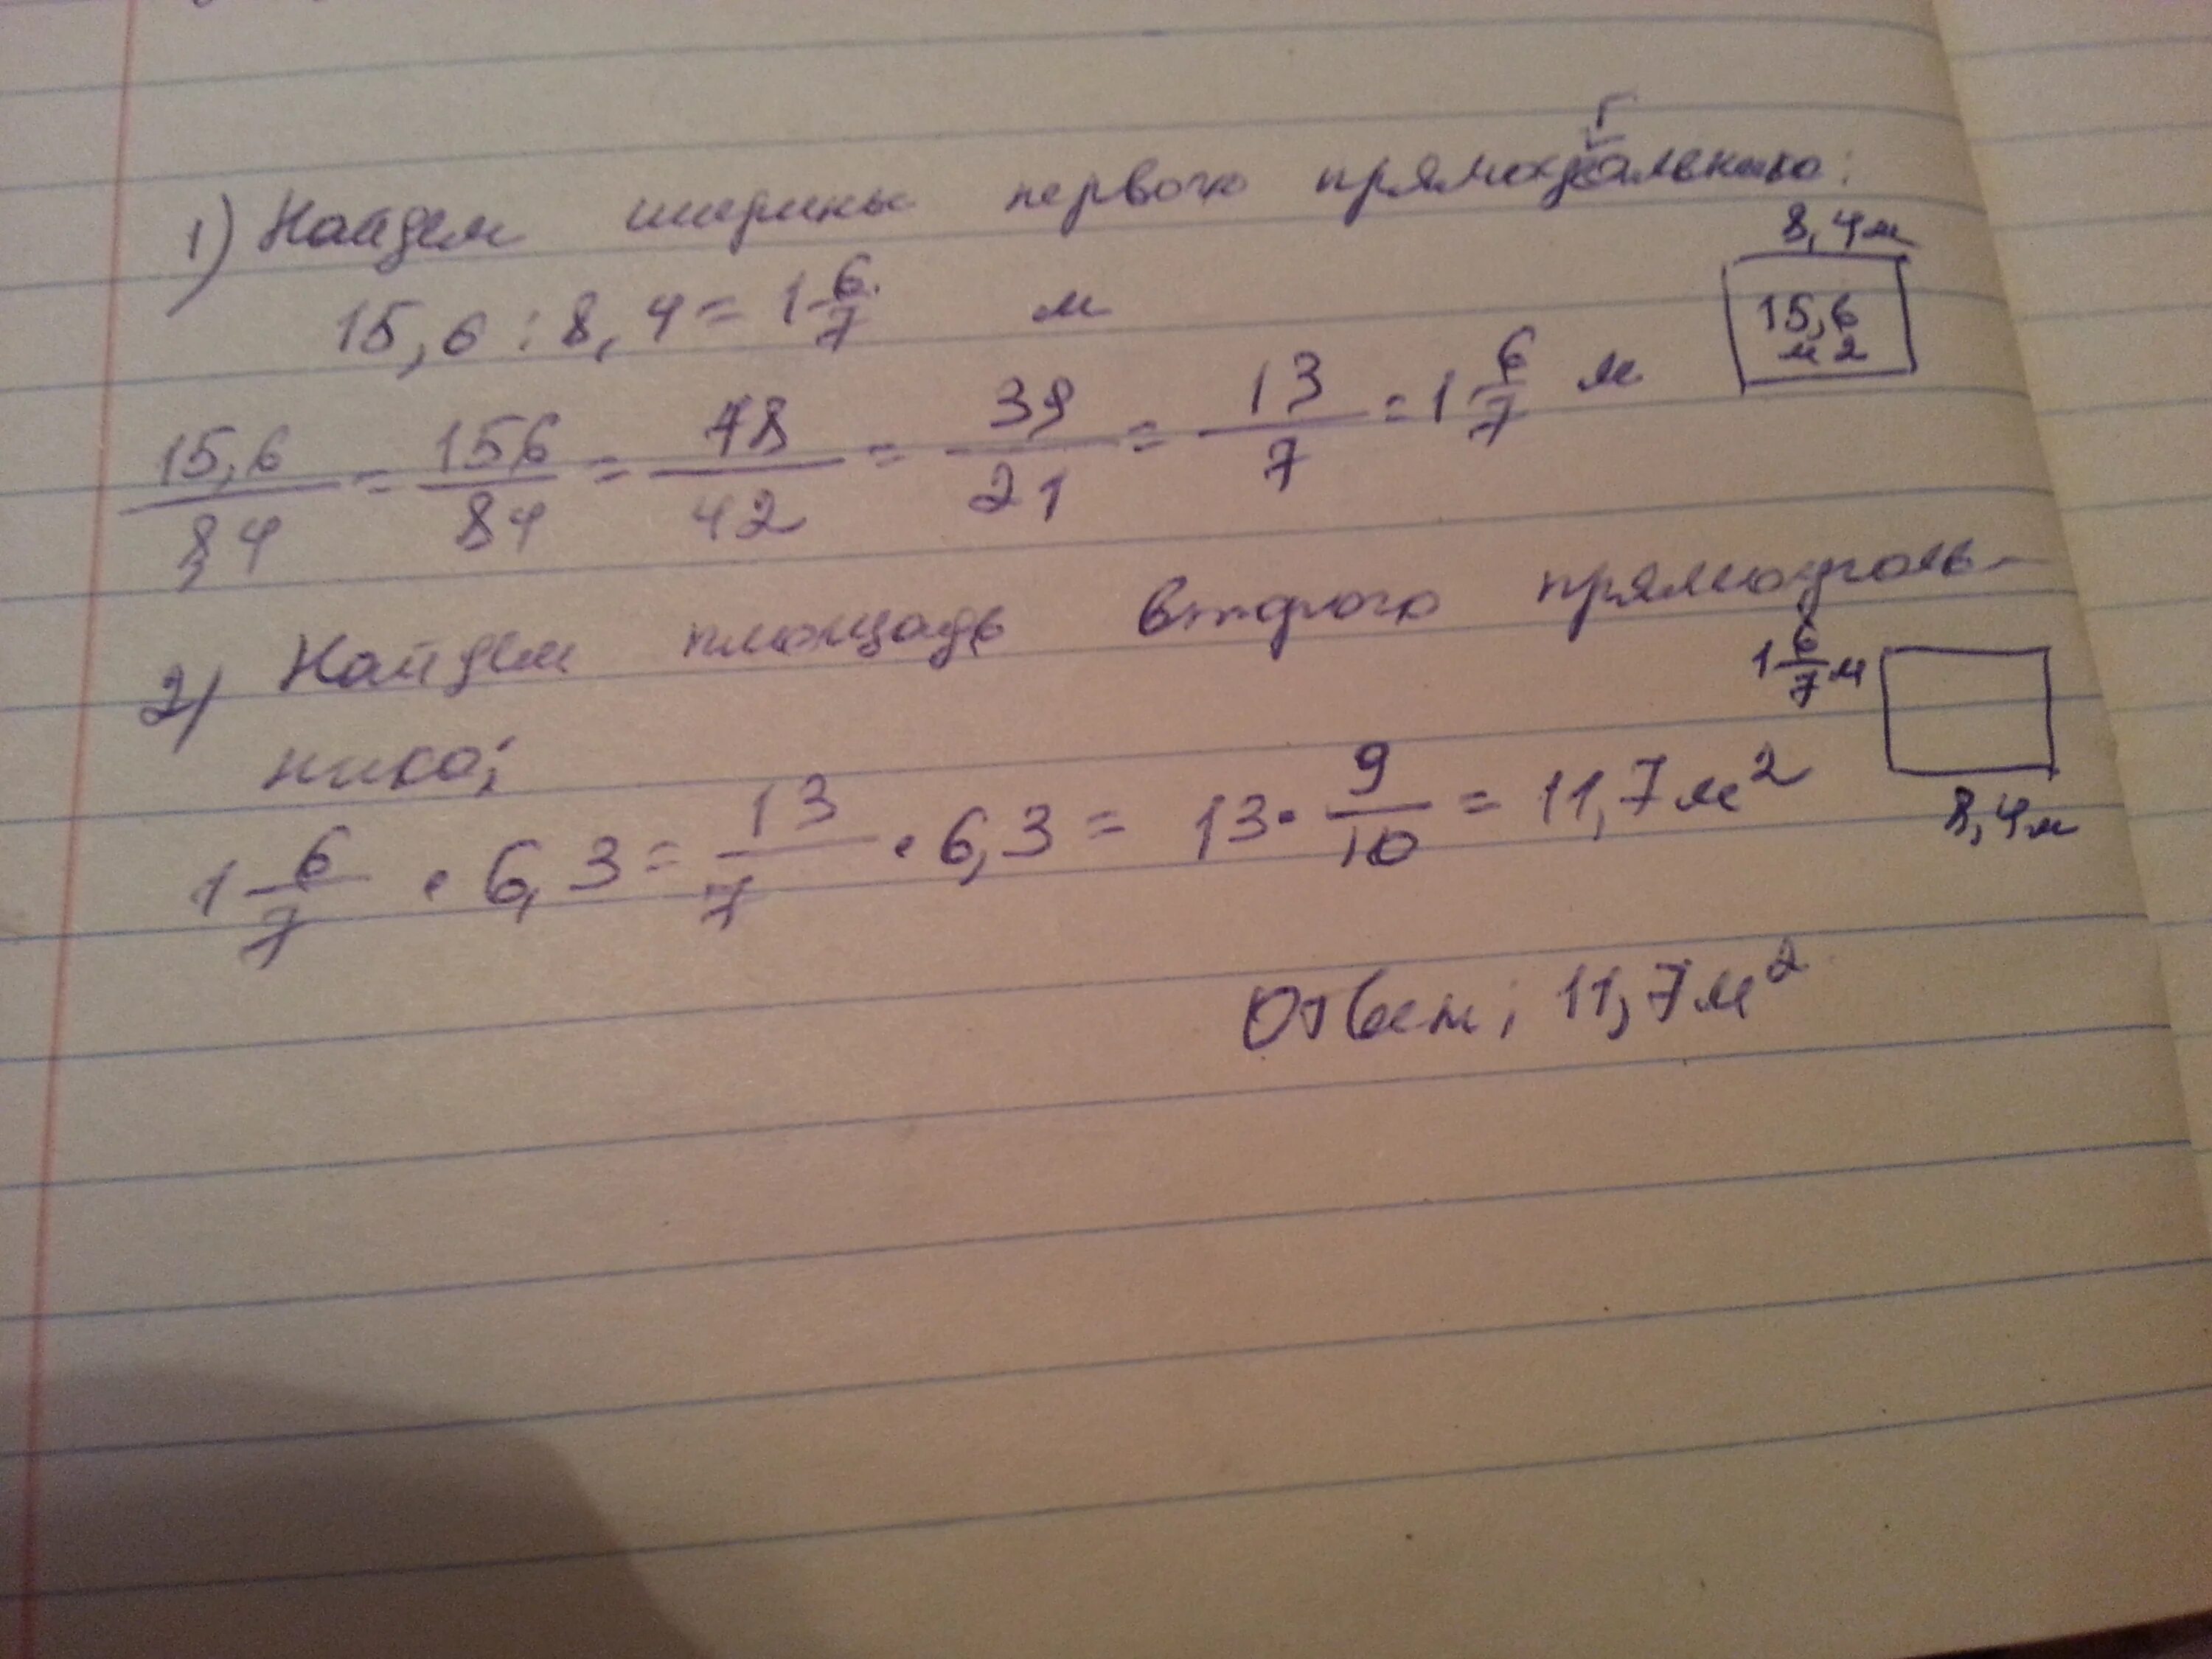 1) Найдем ширину первого прямоугольника:
15,6 : 8,4 = 1 6/7 м
8,4м
15,6
м2
15,6/8,4 = 156/84 = 78/42 = 39/21 = 13/7 = 1 6/7 м
2) Найдем площадь второго прямоуголь-
ника;
1 6/7 м
8,4м
1 6/7 · 6,3 = 13/7 · 6,3 = 13 · 9/10 = 11,7 м²
Ответ; 11,7м²